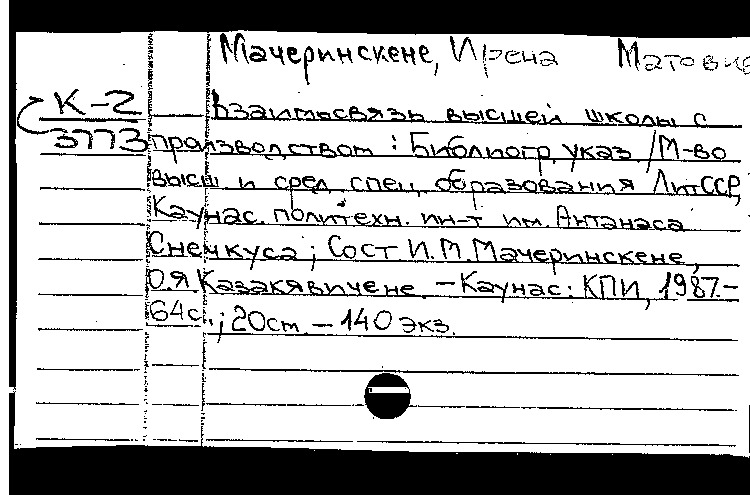 Мачеринскене, Ирена Матовие
К-2 Взаимосвязь высшей школы с
3773 производством : Библиогр. указ / М-во
высш и сред. спец. образования ЛитССР,
Каунас. политехн. ин-т им. Антанаса
Снечкуса ; Сост И.М. Мачеринскене,
О.Я Казакявичене. — Каунас : КПИ, 1987.—
64с., ; 20ст. — 140 экз.